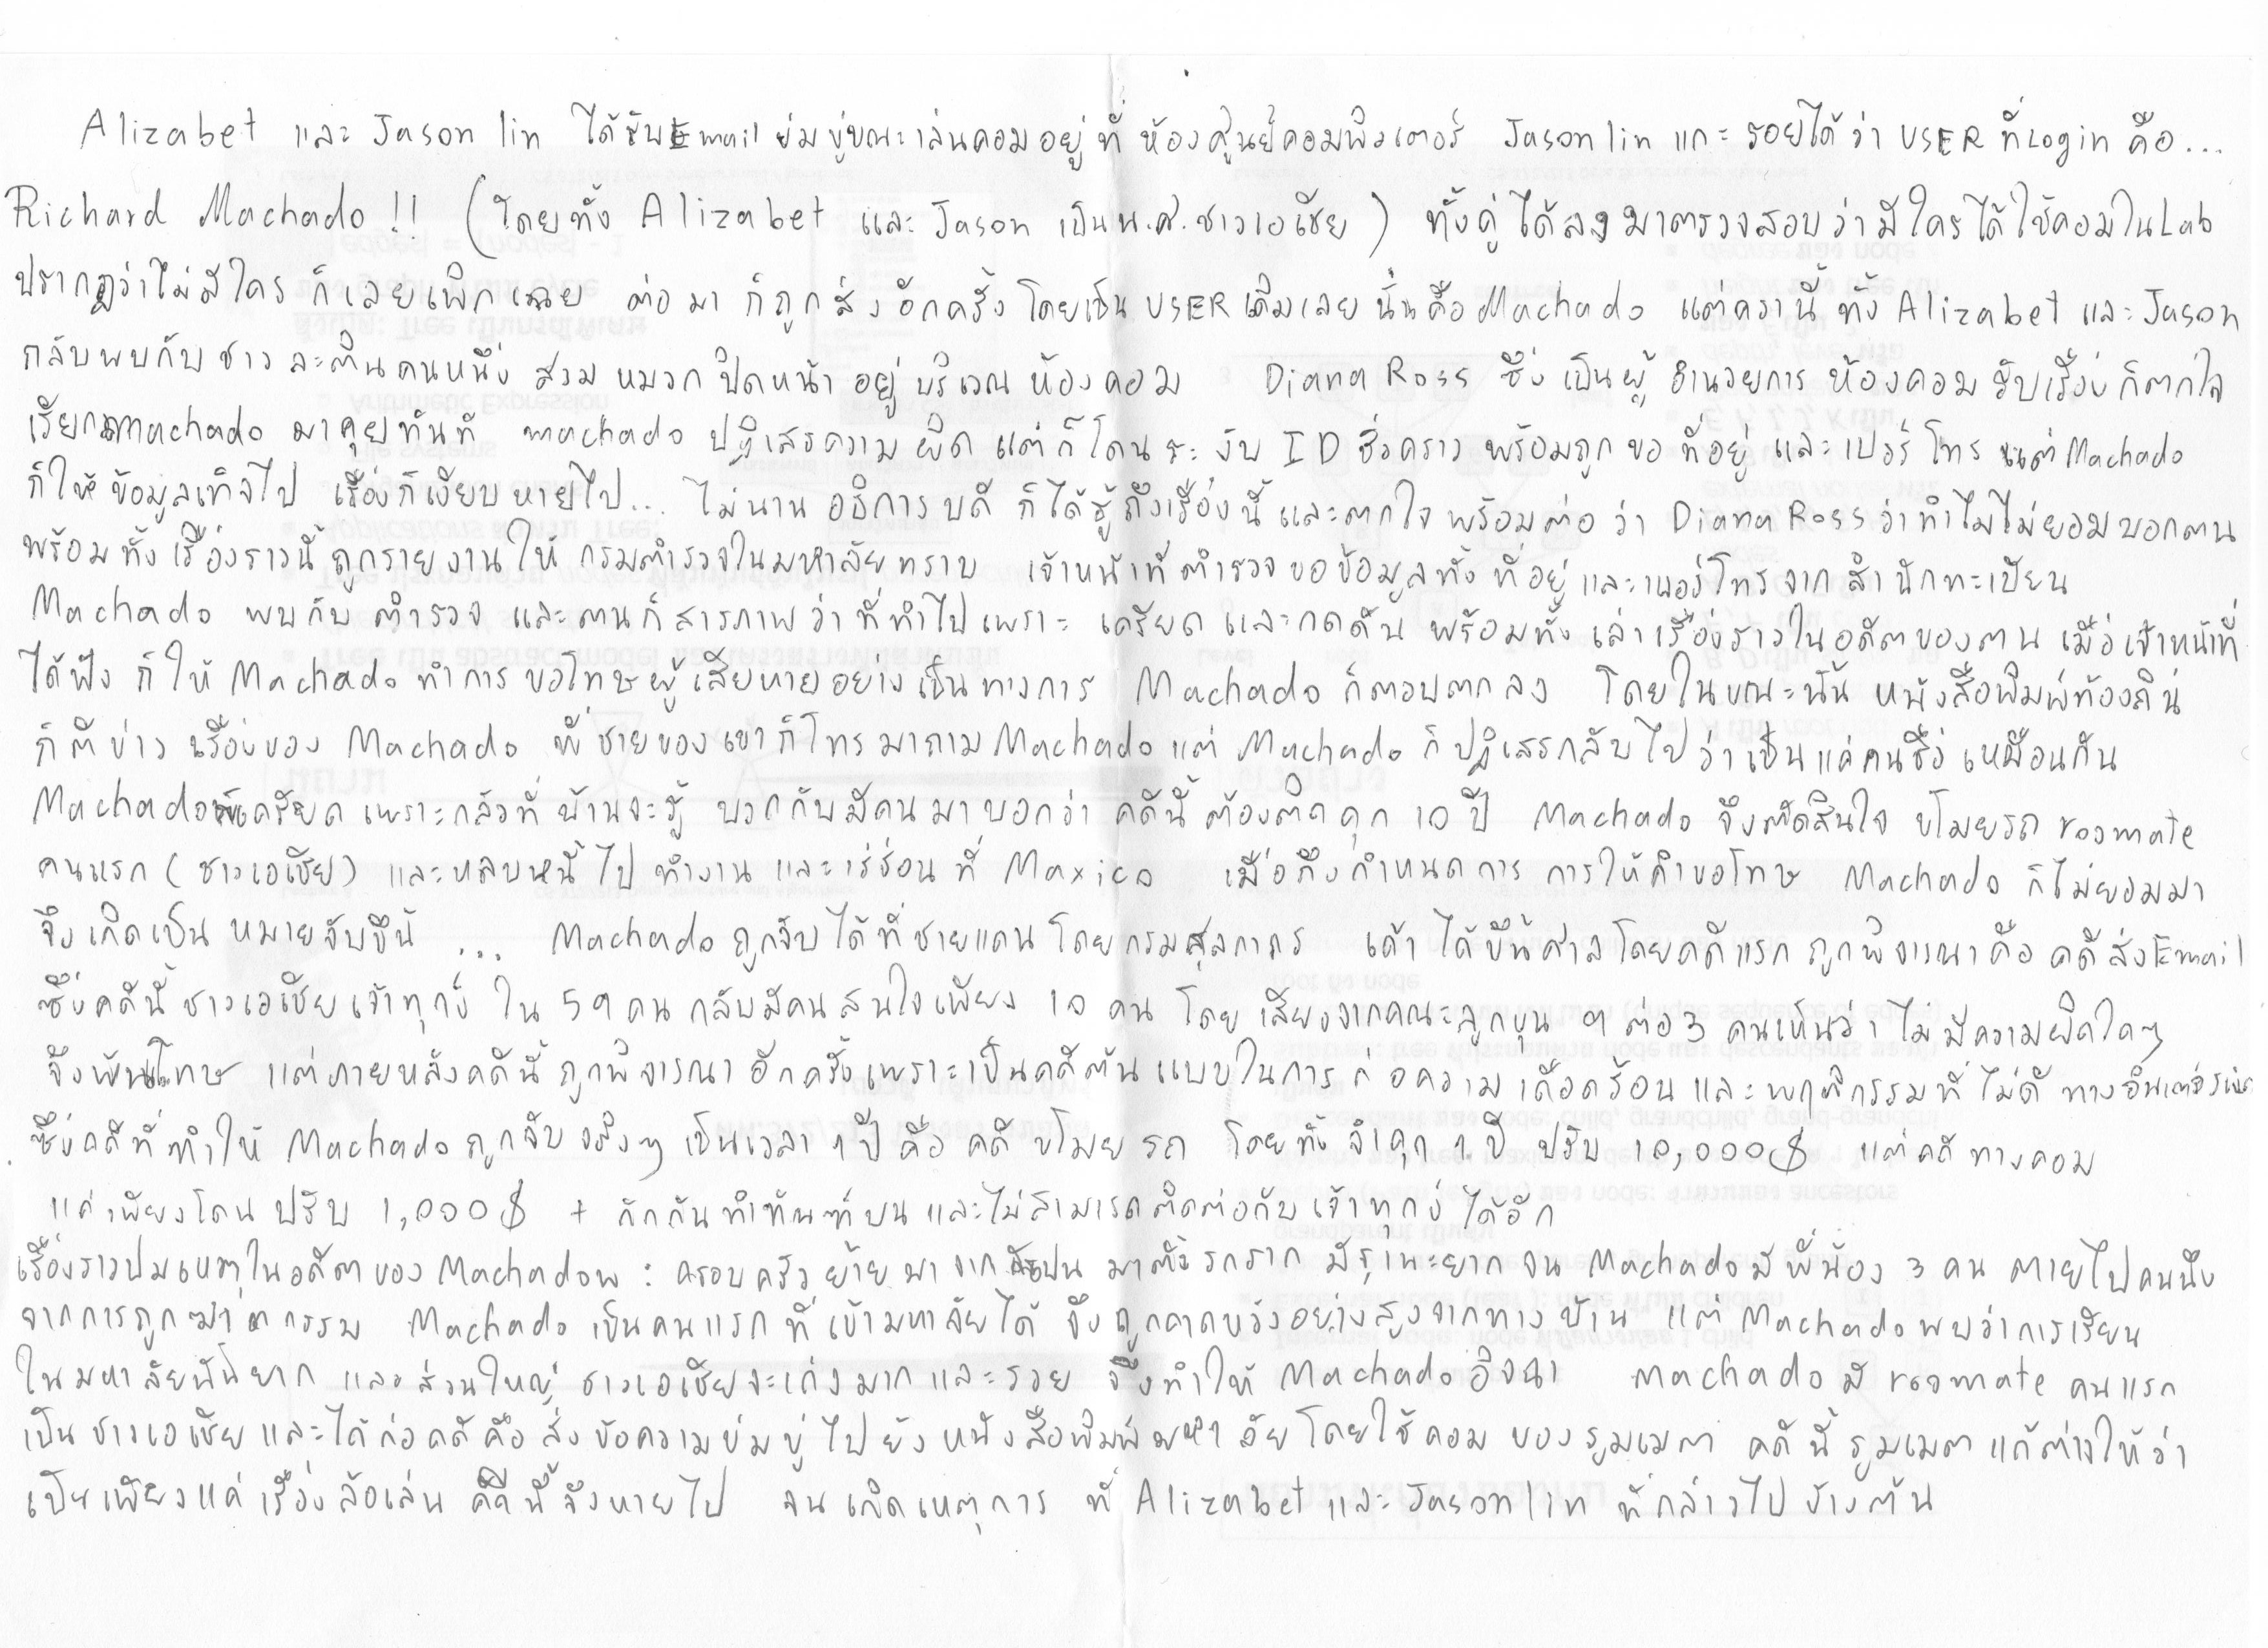 Alizabet และ Jason lin ได้รับ Email ข่มขู่ขณะเล่นคอมอยู่ที่ ห้องศูนย์คอมพิวเตอร์ Jason lin แกะรอยได้ว่า USER ที่ Login คือ...
Richard Machado !! (โดยทั้ง Alizabet และ Jason เป็น น.ศ. ชาวเอเชีย) ทั้งคู่ได้ลงมาตรวจสอบว่ามีใครได้ใช้คอมใน Lab
ปรากฏว่าไม่มีใคร ก็เลยเพิกเฉย ต่อมาก็ถูกส่งอีกครั้งโดยเป็น USER เดิมเลยนั่นคือ Machado แต่ครานี้ทั้ง Alizabet และ Jason
กลับพบกับชาวละตินคนหนึ่ง สวมหมวกปิดหน้าอยู่บริเวณห้องคอม Diana Ross ซึ่งเป็นผู้อำนวยการห้องคอมรับเรื่องก็ตกใจ
เรียก machado มาคุยทันที machado ปฏิเสธความผิด แต่ก็โดนระงับ ID ชั่วคราว พร้อมถูกขอที่อยู่และเบอร์โทร แต่ Machado
ก็ให้ข้อมูลเท็จไป เรื่องก็เงียบหายไป... ไม่นานอธิการบดี ก็ได้รู้ถึงเรื่องนี้และตกใจ พร้อมต่อว่า Diana Ross ว่าทำไมไม่ยอมบอกตน
พร้อมทั้งเรื่องราวนี้ถูกรายงานให้ กรมตำรวจในมหาลัยทราบ เจ้าหน้าที่ตำรวจขอข้อมูลทั้งที่อยู่และเบอร์โทรจากสำนักทะเบียน
Machado พบกับตำรวจ และตนก็สารภาพว่าที่ทำไปเพราะเครียดและกดดัน พร้อมทั้งเล่าเรื่องราวในอดีตของตน เมื่อเจ้าหน้าที่
ได้ฟัง ก็ให้ Machado ทำการขอโทษผู้เสียหายอย่างเป็นทางการ Machado ก็ตอบตกลง โดยในขณะนั้น หนังสือพิมพ์ท้องถิ่น
ก็ตีข่าวเรื่องของ Machado พี่ชายของเขาก็โทรมาถาม Machado แต่ Machado ก็ปฏิเสธกลับไปว่าเป็นแค่คนชื่อเหมือนกัน
Machado เครียดเพราะกลัวที่บ้านจะรู้ บวกกับมีคนมาบอกว่า คดีนี้ต้องติดคุก 10 ปี Machado จึงตัดสินใจขโมยรถ roomate
คนแรก (ชาวเอเชีย) และหลบหนีไปทำงานและเร่ร่อนที่ Maxico เมื่อถึงกำหนดการ การให้คำขอโทษ Machado ก็ไม่ยอมมา
จึงเกิดเป็นหมายจับขึ้น ... Machado ถูกจับได้ที่ชายแดนโดยกรมศุลกากร เค้าได้ขึ้นศาลโดยคดีแรกถูกพิจารณาคือ คดีส่ง Email
ซึ่งคดีนี้ชาวเอเชียเจ้าทุกข์ ใน 59 คน กลับมีคนสนใจเพียง 10 คน โดยเสียงจากคณะลูกขุน 9 ต่อ 3 คนเห็นว่าไม่มีความผิดใดๆ
จึงพ้นโทษ แต่ภายหลังคดีนี้ถูกพิจารณาอีกครั้งเพราะเป็นคดีต้นแบบในการก่อความเดือดร้อนและพฤติกรรมที่ไม่ดีทางอินเตอร์เน็ต
ซึ่งคดีที่ทำให้ Machado ถูกจับจริงๆ เป็นเวลา 1 ปีคือ คดีขโมยรถ โดยทั้งจำคุก 1 ปี ปรับ 10,000$ แต่คดีทางคอม
แค่เพียงโดนปรับ 1,000$ + กักกันทำทัณฑ์บนและไม่สามารถติดต่อกับเจ้าทุกข์ได้อีก
เรื่องราวปมเหตุในอดีตของ Machado : ครอบครัวย้ายมาจาก มาตั้งรกราก มีฐานะยากจน Machado มีพี่น้อง 3 คน ตายไปคนนึง
จากการถูกฆาตกรรม Machado เป็นคนแรกที่เข้ามหาลัยได้ จึงถูกคาดหวังอย่างสูงจากทางบ้าน แต่ Machado พบว่าการเรียน
ในมหาลัยนั้นยาก และส่วนใหญ่ชาวเอเชียจะเก่งมากและรวย จึงทำให้ Machado อิจฉา Machado มี roomate คนแรก
เป็นชาวเอเชียและได้ก่อคดีคือ ส่งข้อความข่มขู่ไปยังหนังสือพิมพ์มหาลัยโดยใช้คอมของรูมเมต คดีนี้รูมเมตแก้ต่างให้ว่า
เป็นเพียงแค่เรื่องล้อเล่น คดีนี้จึงหายไป จนเกิดเหตุการ ที่ Alizabet และ Jason lin ที่กล่าวไปข้างต้น